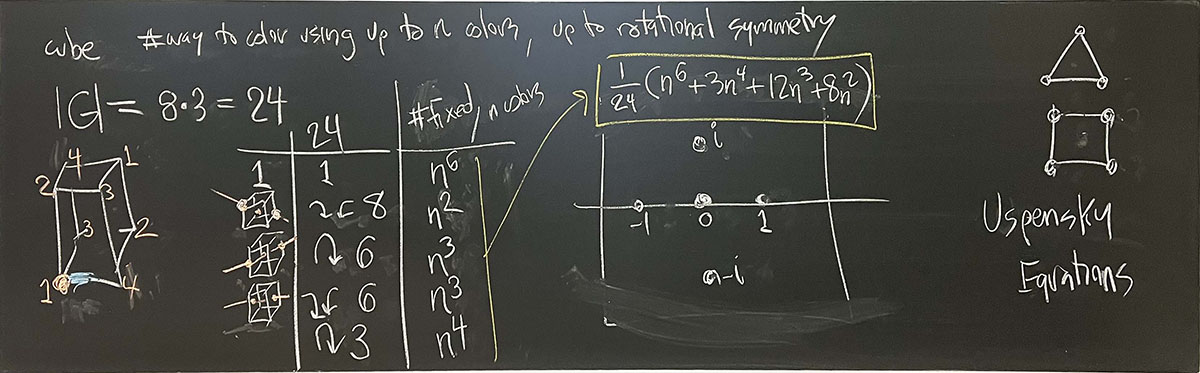 cube #way to color using up to n colors, up to rotational symmetry
|G| = 8·3 = 24
4 1
2 3
3 2
1 4
24 #fixed, n colors
1 1 n⁶
8 n²
6 n³
6 n³
3 n⁴
1/24 (n⁶+3n⁴+12n³+8n²)
i
-1 0 1
-i
Uspensky
Equations